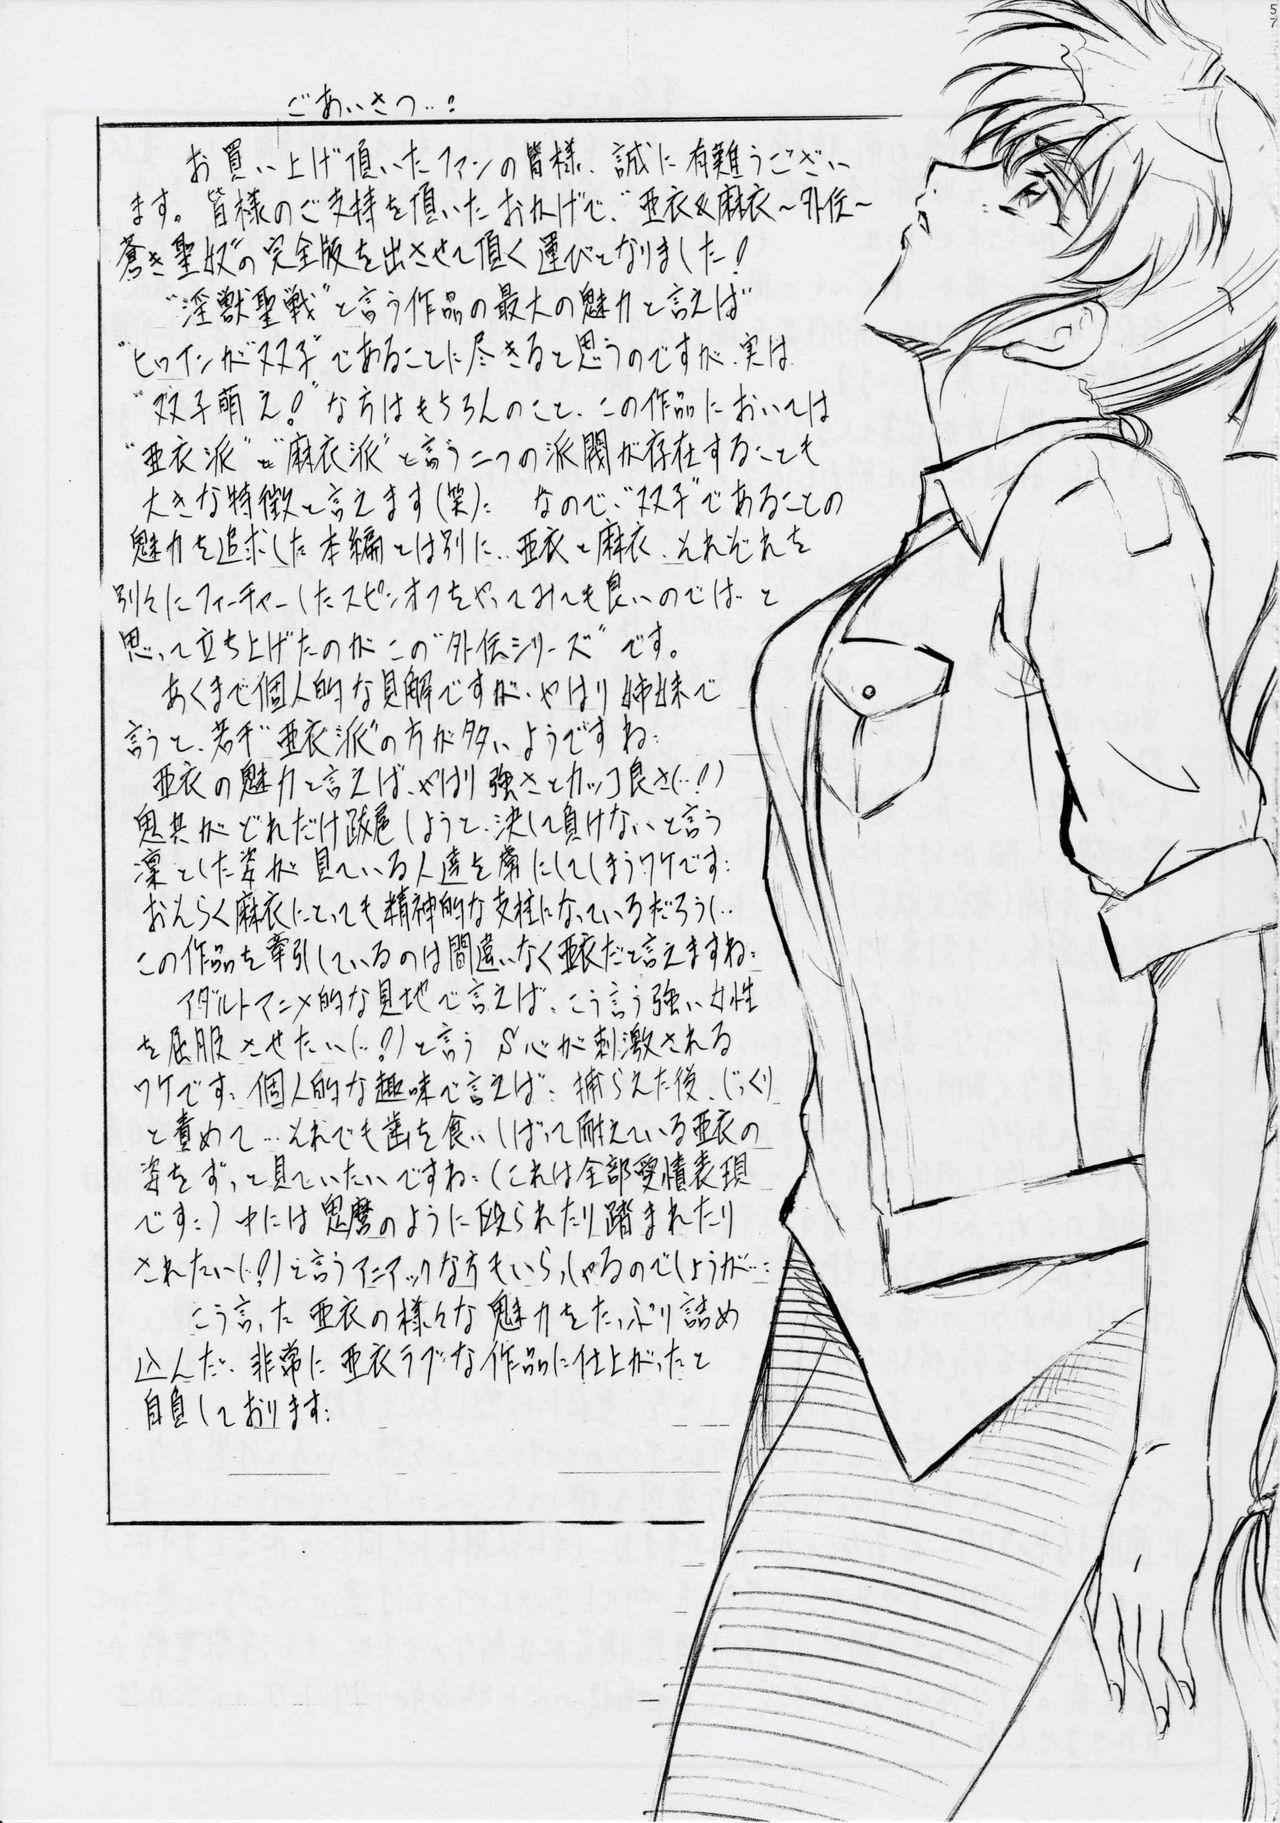 57
ごあいさつ…!
お買い上げ頂いたファンの皆様、誠に有難うござい
ます。皆様のご支持を頂いたおかげで、“亜衣&麻衣～外伝～
蒼き聖奴”の完全版を出させて頂く運びとなりました!
“淫獣聖戦”と言う作品の最大の魅力と言えば
“ヒロインが双子”であることに尽きると思うのですが、実は
“双子萌え!”な方はもちろんのこと、この作品においては
“亜衣派”と“麻衣派”と言う二つの派閥が存在することも
大きな特徴と言えます(笑)… なので、“双子”であることの
魅力を追求した本編とは別に…亜衣と麻衣、それぞれを
別々にフィーチャーしたスピンオフをやってみても良いのでは…と
思って立ち上げたのがこの“外伝シリーズ”です。
あくまで個人的な見解ですが、やはり姉妹で
言うと、若干“亜衣派”の方が多いようですね…
亜衣の魅力と言えば、やはり強さとカッコ良さ(…!)
鬼共がどれだけ跋扈しようと、決して負けないと言う
凛とした姿が見ている人達を虜にしてしまうワケです…
おそらく麻衣にとっても精神的な支柱になっているだろうし…
この作品を牽引しているのは間違いなく亜衣だと言えますね…
アダルトアニメ的な見地で言えば、こう言う強い女性
を屈服させたい(…?)と言うS心が刺激される
ワケです…個人的な趣味で言えば…捕らえた後、じっくり
と責めて…それでも歯を食いしばって耐えている亜衣の
姿をずっと見ていたいですね…(これは全部愛情表現
です…)中には鬼麿のように殴られたり踏まれたり
されたい(…?)と言うマニアックな方もいらっしゃるのでしょうが…
こう言った亜衣の様々な魅力をたっぷり詰め
込んだ、非常に亜衣ラブな作品に仕上がったと
自負しております…